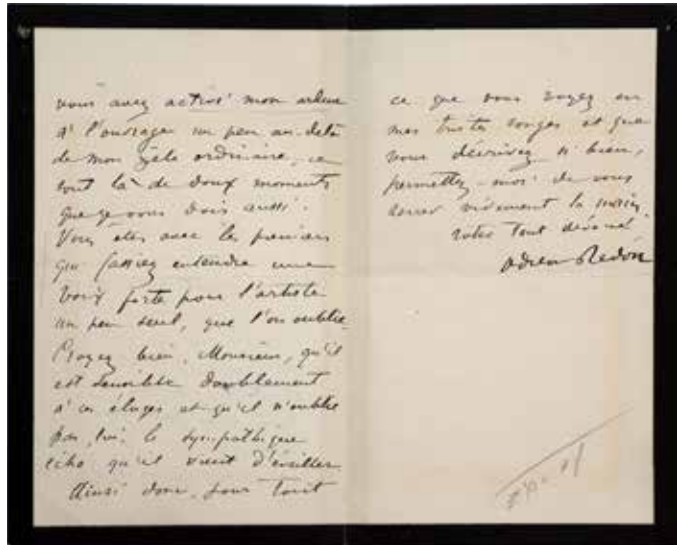 vous avez activé mon ardeur
à l'ouvrage un peu au-delà
de mon zèle ordinaire, ce
sont là de doux moments
que je vous dois aussi.
Vous êtes avec les premiers
qui fassiez entendre une
voix forte pour l'artiste
un peu seul, que l'on oublie.
Croyez bien, Monsieur, qu'il
est sensible doublement
à ces éloges et qu'il n'oublie
pas, lui, le sympathique
écho qu'il vient d'éveiller.
Ainsi donc, pour tout
ce que vous voyez en
mes tristes songes et que
vous décrivez si bien,
permettez-moi de vous
serrer vivement la main.
votre tout dévoué.
odilon Redon